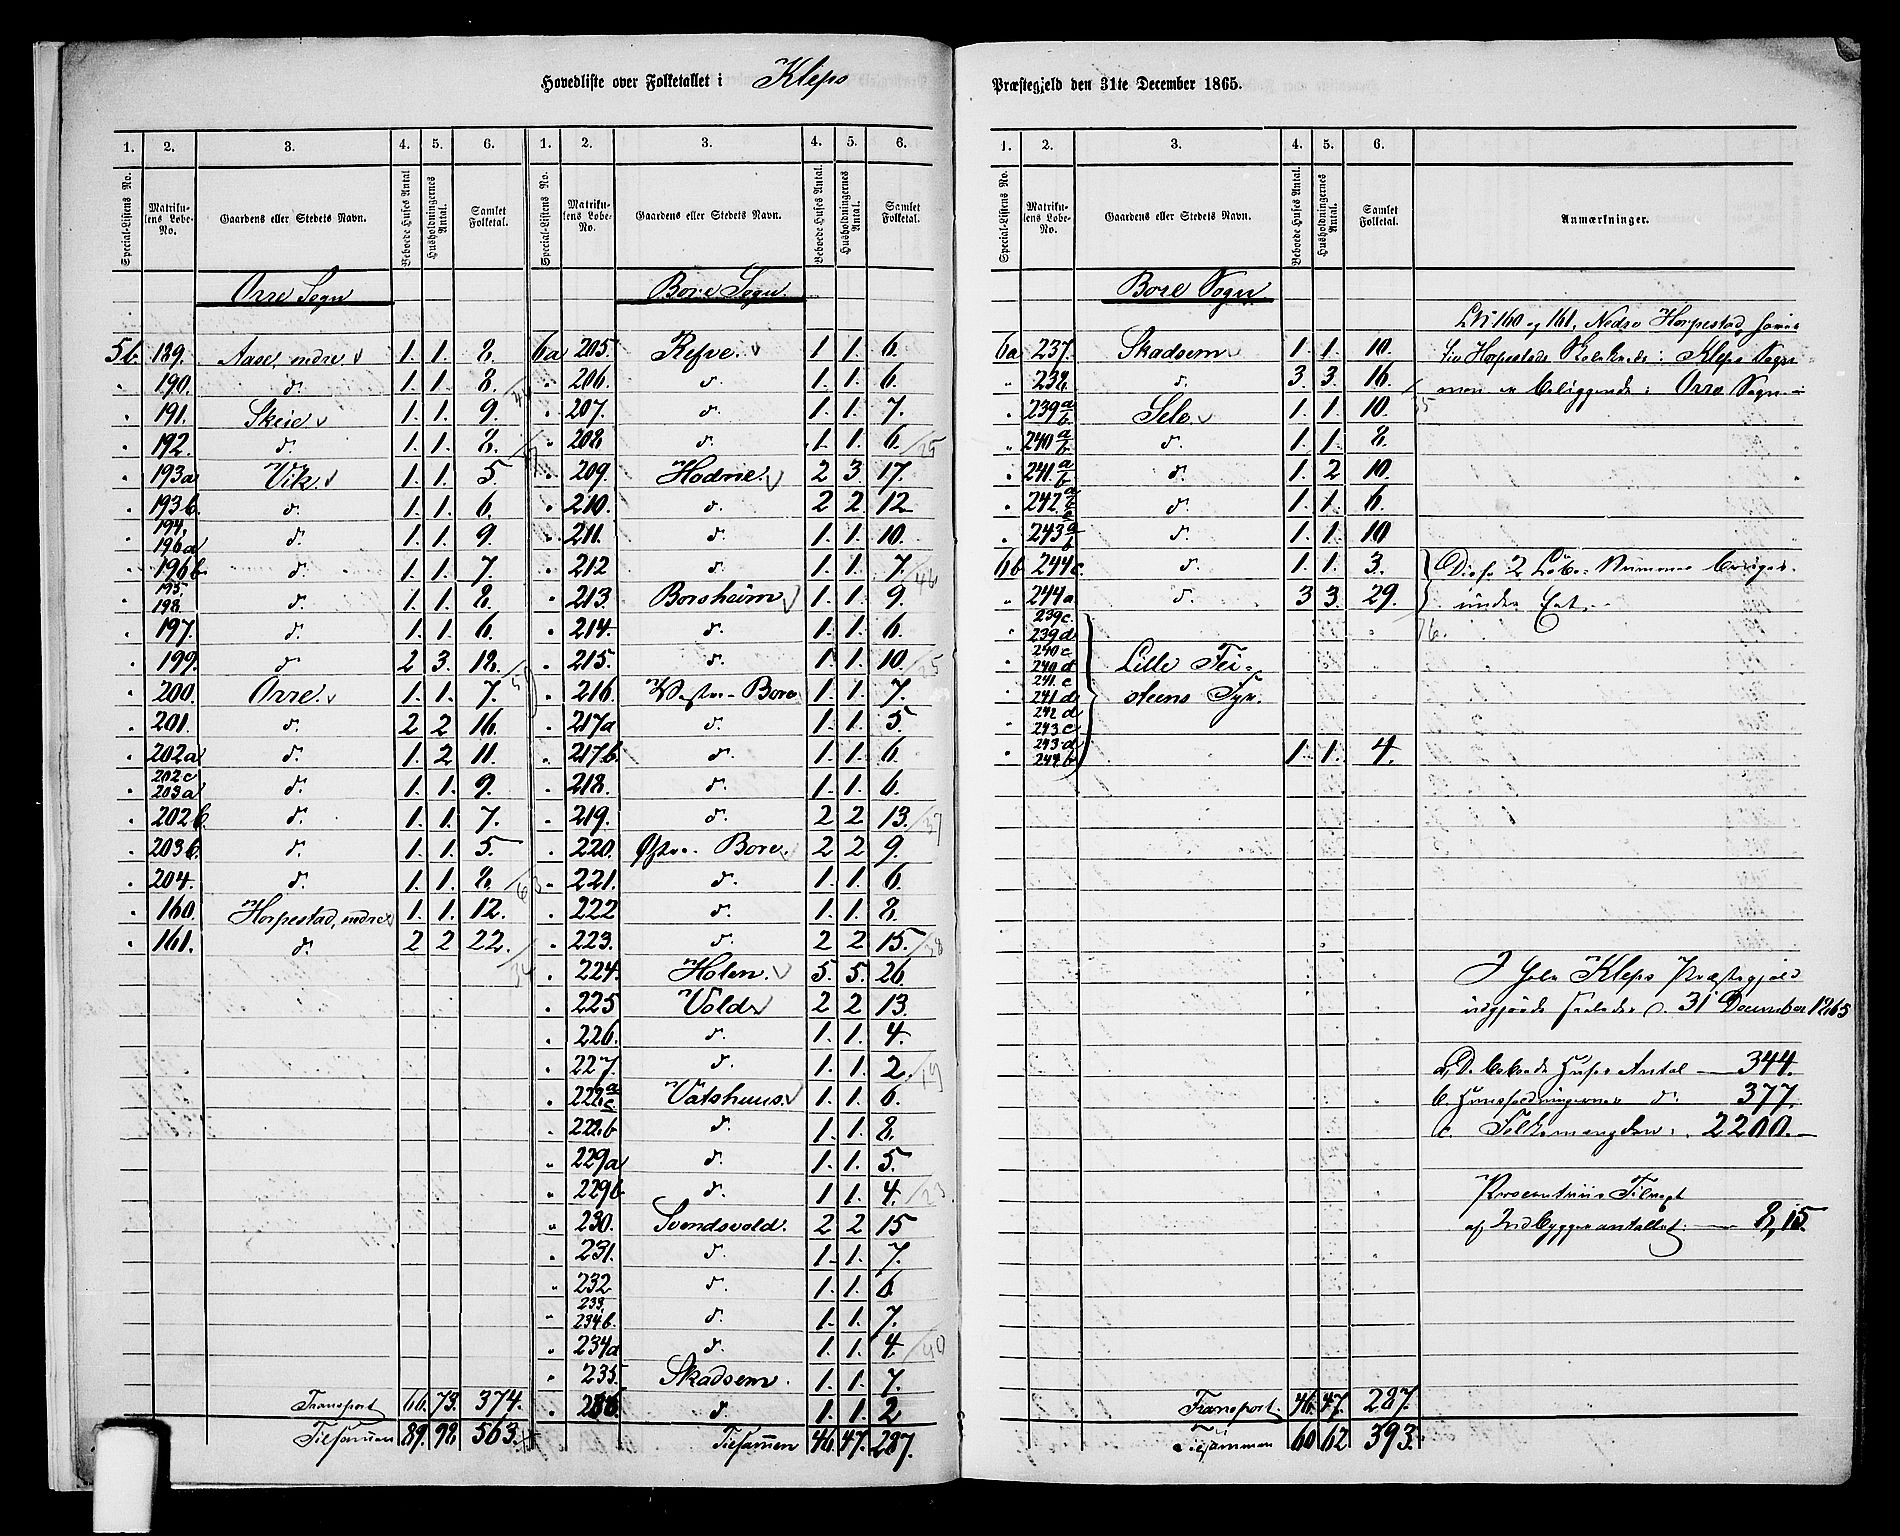 Hovedliste over Folketallet i Klepp
Præstegjeld den 31te December 1865.
1. 2. 3. 4. 5. 6. 1. 2. 3. 4. 5. 6.
Special-Listens No. Matrikulens Løbe-No. Gaardens eller Stedets Navn. Beboede Huses Antal Husholdningernes Antal. Samlet Folketal. Special-Listens No. Matrikulens Løbe-No. Gaardens eller Stedets Navn. Beboede Huses Antal. Husholdningernes Antal. Samlet Folketal.
Orre Sogn
5b. 189. Aase, indre 1. 1. 8.
190. d. 1. 1. 8.
191. Skeie 1. 1. 9.
192. d. 1. 1. 8.
193a Vik 1. 1. 5.
193b. d. 1. 1. 6.
194. 196a d. 1. 1. 9.
196b d. 1. 1. 7.
195. 198. d. 1. 1. 8.
197. d. 1. 1. 6.
199. d. 2 3. 18.
200. Orre. 1. 1. 7.
201. d. 2 2 16.
202a d. 1. 2 11.
202c 203a d. 1. 1. 9.
202b. d. 1. 1. 7.
203b. d. 1. 1. 5.
204. d. 1. 1. 8.
160. Horpestad, nedre 1. 1. 12.
161. d. 2 2 22.
Transport 66. 73. 374.
Tilsammen 89. 98. 563.
Bore Sogn.
6a 205. Refve. 1 1. 6.
206. d. 1. 1. 6.
207. d. 1. 1. 7.
208 d. 1. 1. 6.
209. Hodne. 2 3. 17.
210. d. 2 2. 12
211. d. 1. 1. 10.
212 d. 1. 1. 7.
213. Borsheim 1. 1. 9.
214. d. 1. 1. 6.
215. d. 1. 1. 10.
216. Vestre Bore 1. 1. 7.
217a d. 1. 1. 5.
217b. d. 1. 1. 6.
218. d. 1. 1. 6.
219. d. 2 2 13.
220. Østre Bore. 2 2 9.
221. d. 1. 1. 6.
222 d. 1. 1. 8.
223. d. 2 2 15.
224. Holen. 5. 5. 26.
225 Vold 2 2 13.
226. d. 1. 1. 4.
227. d. 1. 1. 2.
228 a c Vatshuus. 1. 1. 6.
228b d. 1. 1. 8.
229a d. 1. 1. 5.
229b d. 1. 1. 4.
230. Svendsvold. 2 2 15
231. d. 1. 1. 7.
232 d. 1. 1. 6
233. 234b. d. 1. 1. 7.
234a d. 1. 1. 4.
235. Skadsem. 1. 1. 7.
236. d. 1. 1. 2
Tilsammen 46. 47. 287.
1. 2. 3. 4. 5. 6.
Special-Listens No. Matrikulens Løbe-No. Gaardens eller Stedets Navn. Beboede Huses Antal. Husholdningernes Antal. Samlet Folketal. Anmærkninger.
Bore Sogn.
6a 237. Skadsem 1. 1. 10.
238. d. 3. 3. 16.
239 a b. Sele 1. 1. 10.
240 a b d. 1. 1. 8.
241. a b d. 1. 2 10.
242. a b c d. 1. 1. 6
243 a b d. 1. 1. 10
6b 244c. d. 1. 1. 3.
244a d. 3 3. 29.
239c.
239d
240c
240d
241.c
241d
242d
243c
243d
244b
Lille Feisteens Fyr. 1. 1. 4.
Transport. 46. 47. 287.
Tilsammen 60 62 393.
160 og 161, Nedre Horpestad,
Horpestads Klepp Sogn
men er beliggende i Orre Sogn
Disse 2 Løbe-Numere
under Eet.
I hele Klepp Præstegjeld
udgjorde saaledes d. 31 December 1865
a, De beboede Huses Antal 344.
b. Huusholdningernes d. 377.
c. Folkemængden. 2200.
Procentviis Tilvext
af Indbyggerantallet 8,15.